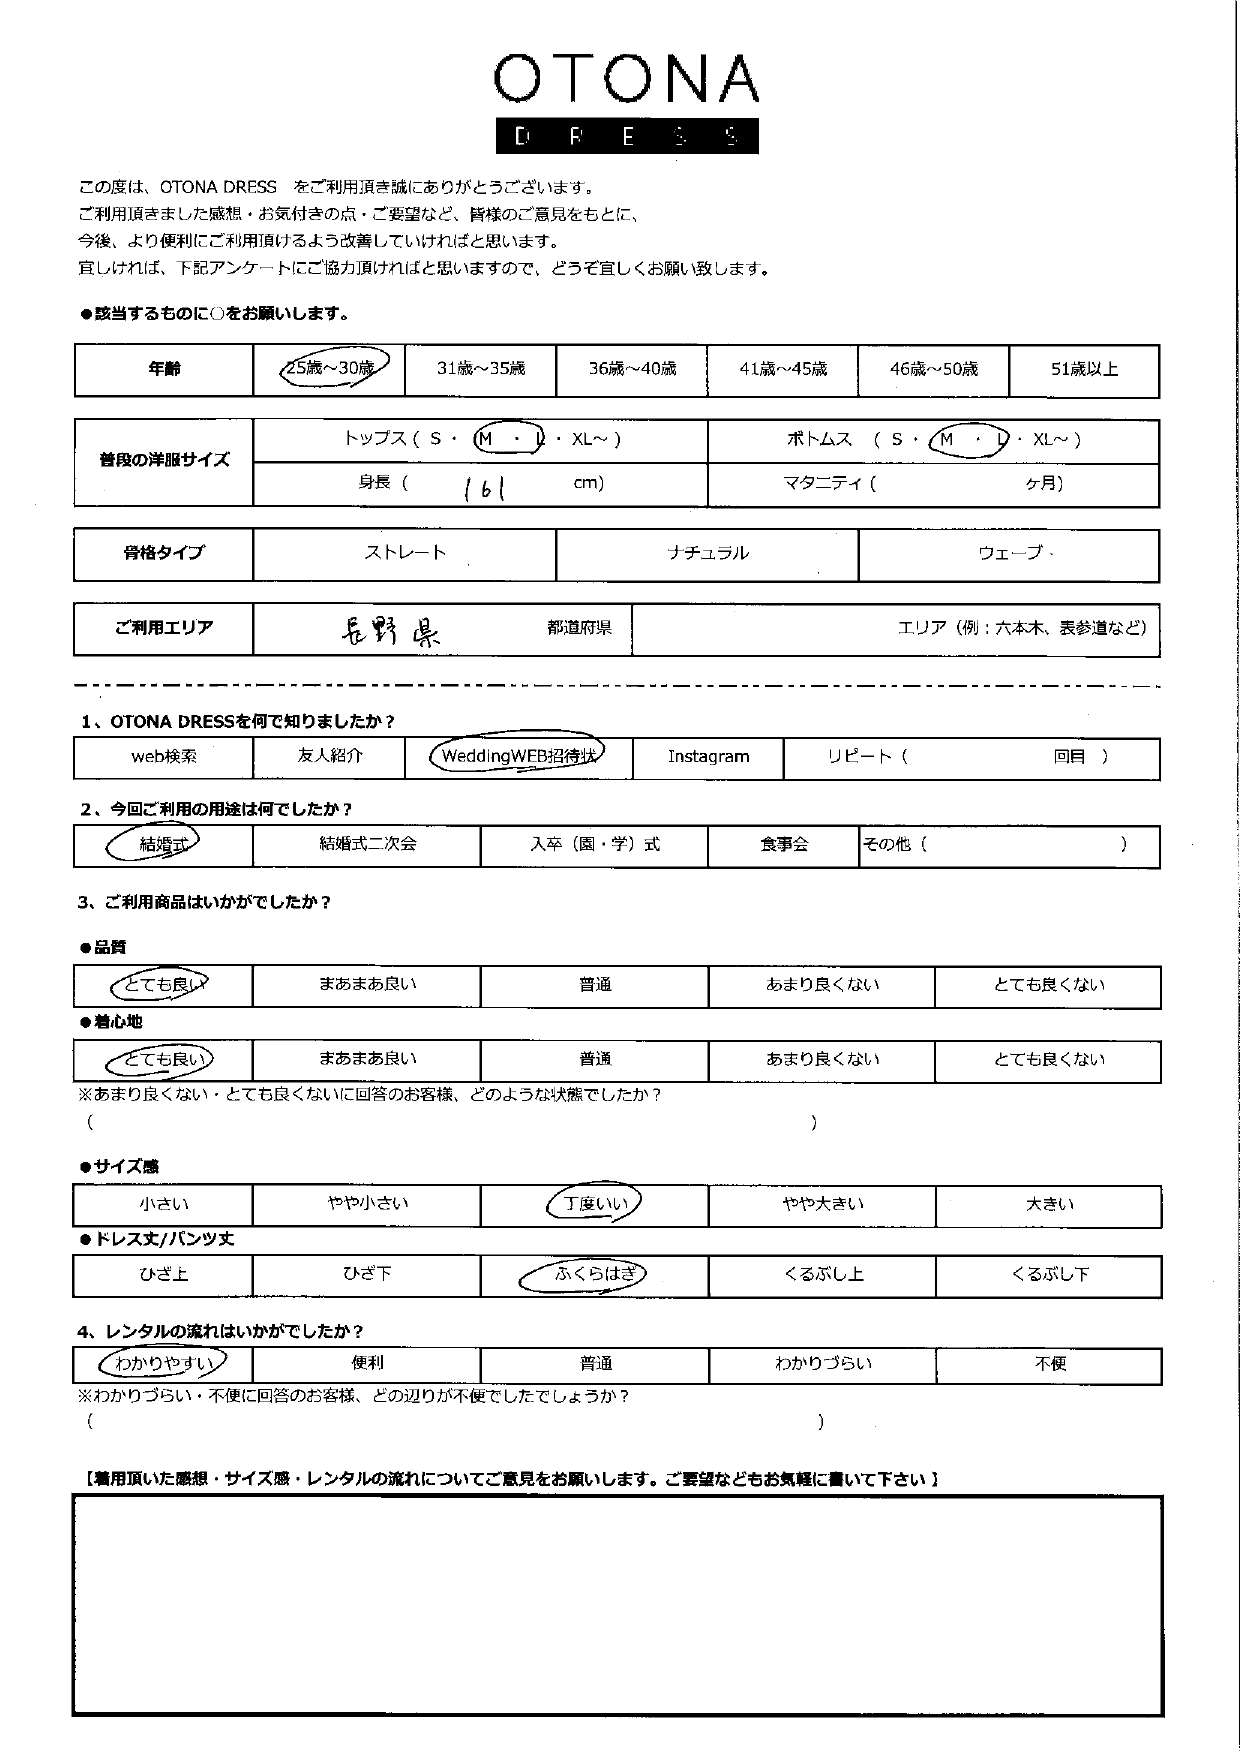 OTONA
DRESS
この度は、OTONA DRESS　をご利用頂き誠にありがとうございます。
ご利用頂きました感想・お気付きの点・ご要望など、皆様のご意見をもとに、
今後、より便利にご利用頂けるよう改善していければと思います。
宜しければ、下記アンケートにご協力頂ければと思いますので、どうぞ宜しくお願い致します。
●該当するものに○をお願いします。
年齢 25歳～30歳 31歳～35歳 36歳～40歳 41歳～45歳 46歳～50歳 51歳以上
普段の洋服サイズ トップス ( S ・ M ・ L ・ XL～ ) ボトムス ( S ・ M ・ L ・ XL～ )
身長 ( 161 cm) マタニティ ( ヶ月)
骨格タイプ ストレート ナチュラル ウェーブ
ご利用エリア 長野県 都道府県 エリア（例：六本木、表参道など）
1、OTONA DRESSを何で知りましたか？
web検索 友人紹介 WeddingWEB招待状 Instagram リピート ( 回目 )
2、今回ご利用の用途は何でしたか？
結婚式 結婚式二次会 入卒（園・学）式 食事会 その他 ( )
3、ご利用商品はいかがでしたか？
●品質
とても良い まあまあ良い 普通 あまり良くない とても良くない
●着心地
とても良い まあまあ良い 普通 あまり良くない とても良くない
※あまり良くない・とても良くないに回答のお客様、どのような状態でしたか？
( )
●サイズ感
小さい やや小さい 丁度いい やや大きい 大きい
●ドレス丈/パンツ丈
ひざ上 ひざ下 ふくらはぎ くるぶし上 くるぶし下
4、レンタルの流れはいかがでしたか？
わかりやすい 便利 普通 わかりづらい 不便
※わかりづらい・不便に回答のお客様、どの辺りが不便でしたでしょうか？
( )
【着用頂いた感想・サイズ感・レンタルの流れについてご意見をお願いします。ご要望などもお気軽に書いて下さい】